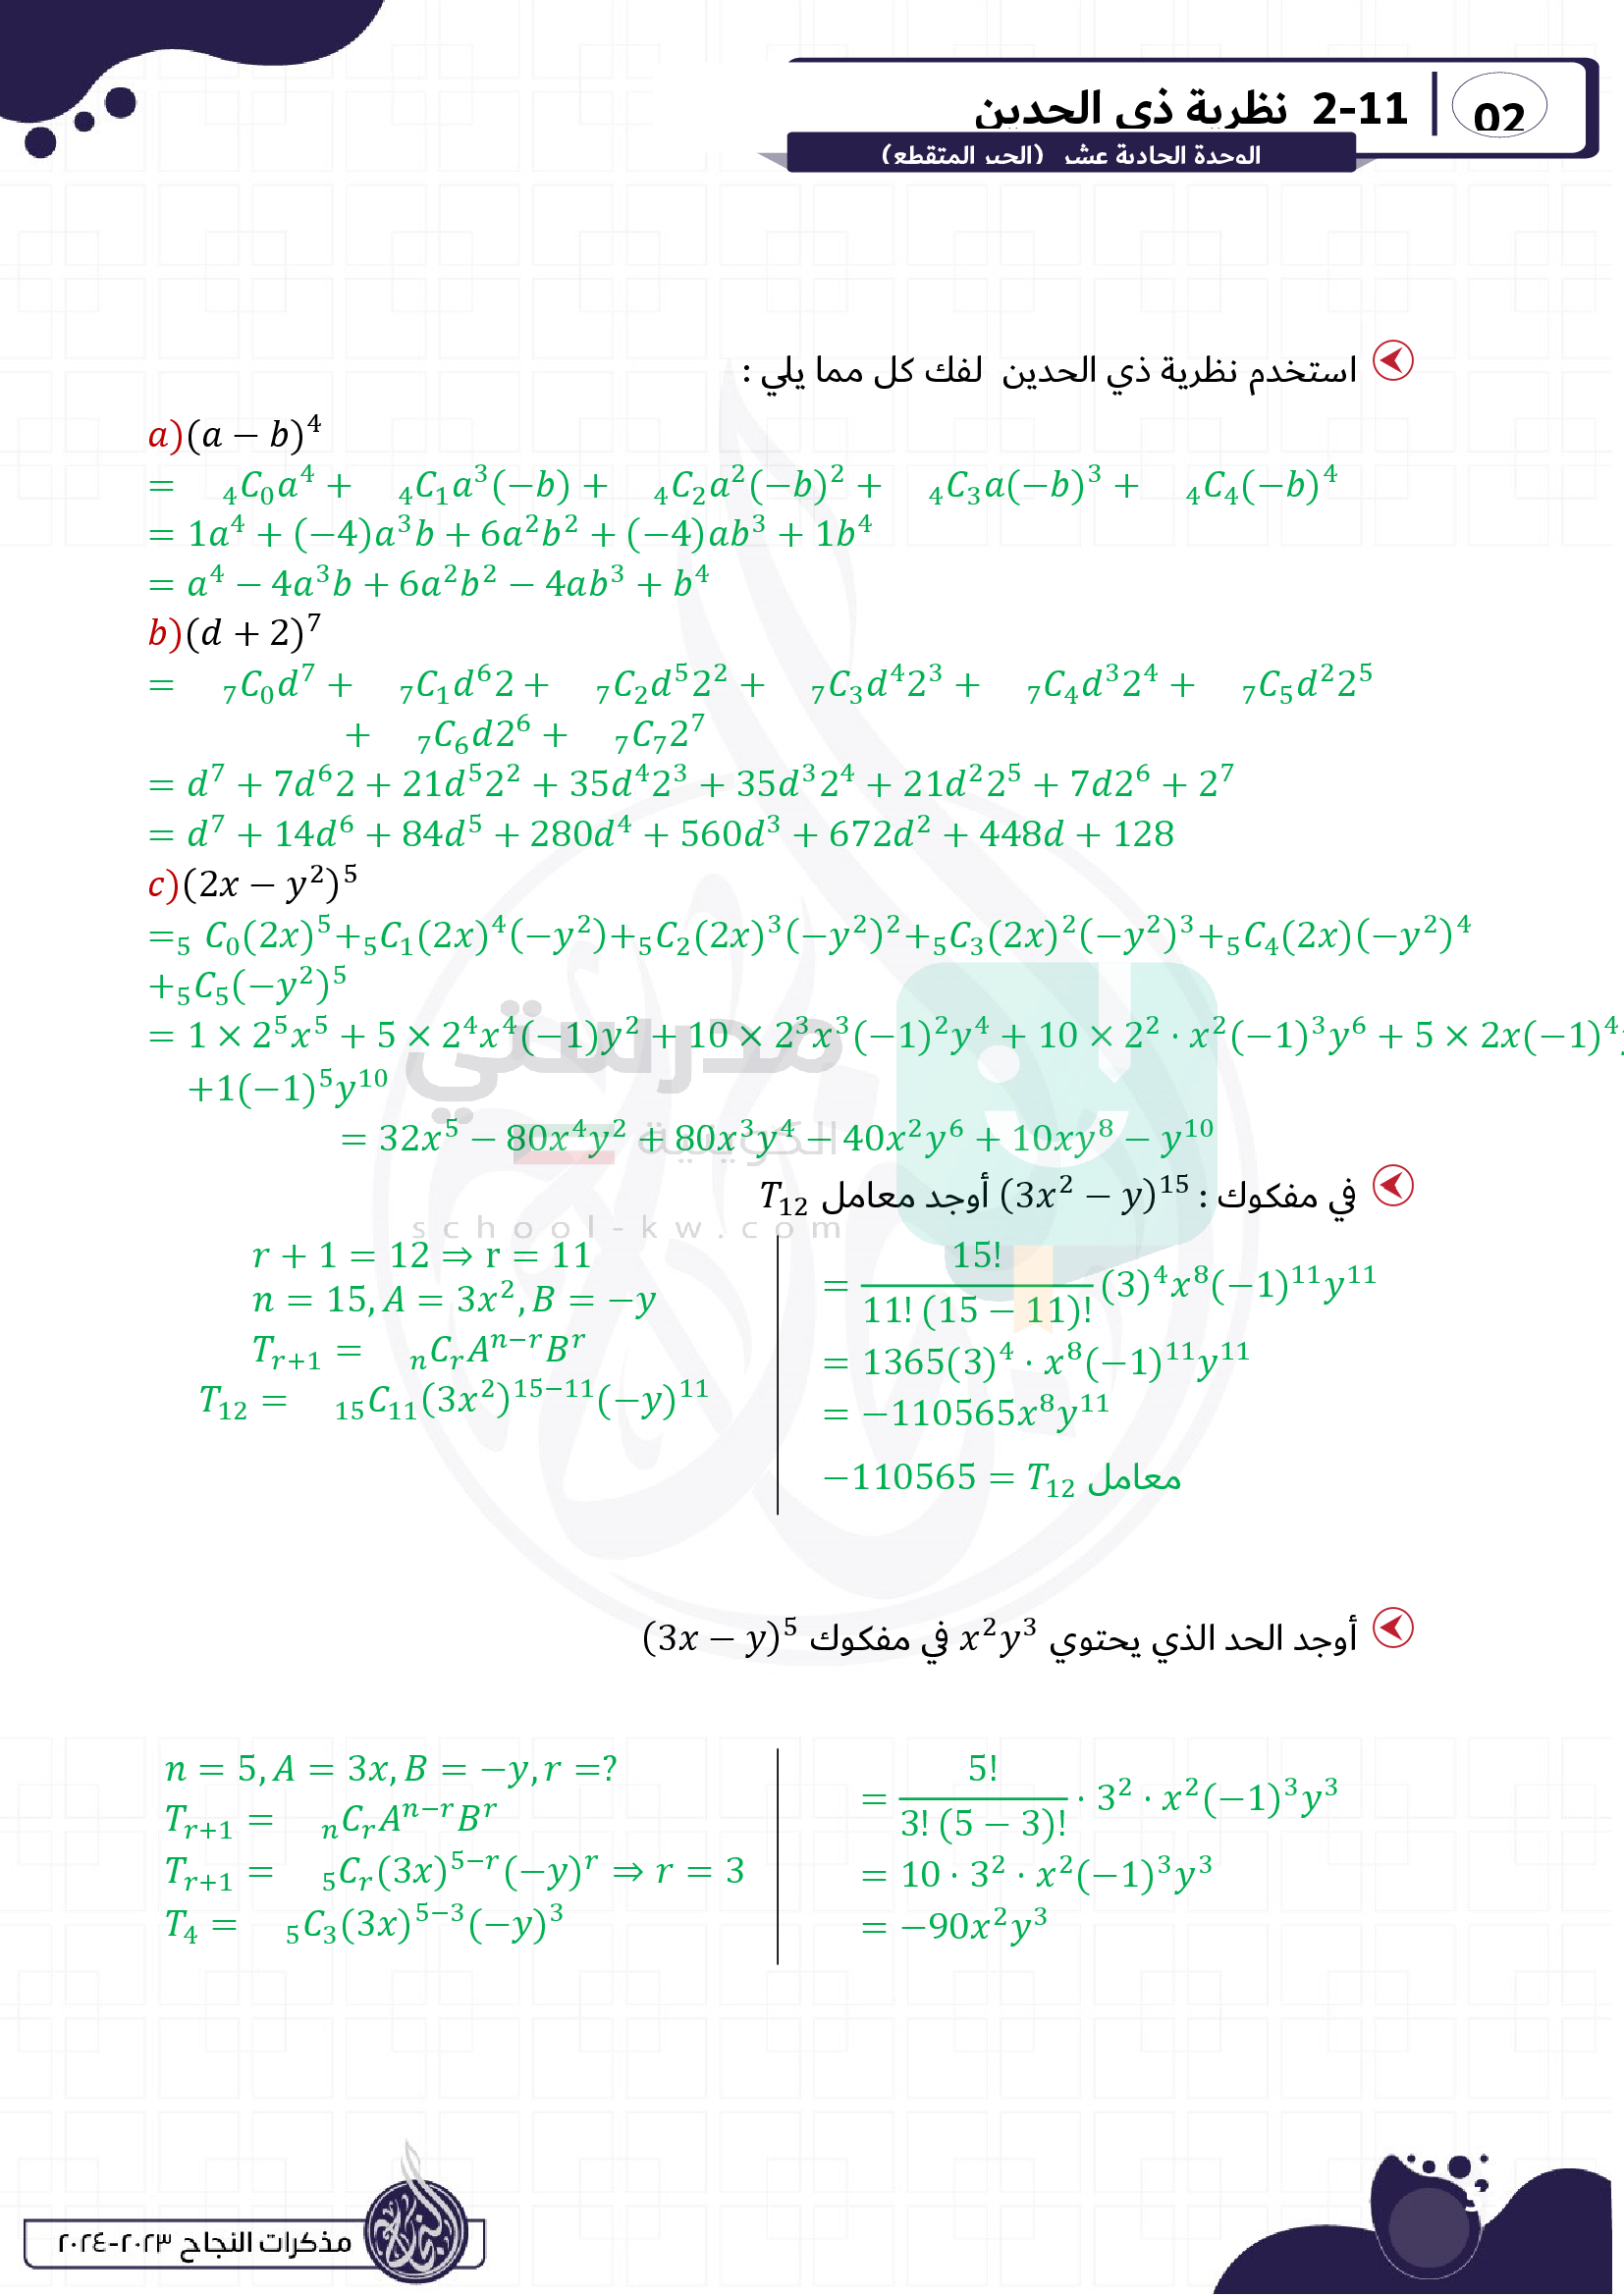 02
2-11 نظرية ذي الحدين
الوحدة الحادية عشر (الجبر المتقطع)
استخدم نظرية ذي الحدين لفك كل مما يلي :
a)(a − b)⁴
= ₄C₀a⁴ + ₄C₁a³(−b) + ₄C₂a²(−b)² + ₄C₃a(−b)³ + ₄C₄(−b)⁴
= 1a⁴ + (−4)a³b + 6a²b² + (−4)ab³ + 1b⁴
= a⁴ − 4a³b + 6a²b² − 4ab³ + b⁴
b)(d + 2)⁷
= ₇C₀d⁷ + ₇C₁d⁶2 + ₇C₂d⁵2² + ₇C₃d⁴2³ + ₇C₄d³2⁴ + ₇C₅d²2⁵
+ ₇C₆d2⁶ + ₇C₇2⁷
= d⁷ + 7d⁶2 + 21d⁵2² + 35d⁴2³ + 35d³2⁴ + 21d²2⁵ + 7d2⁶ + 2⁷
= d⁷ + 14d⁶ + 84d⁵ + 280d⁴ + 560d³ + 672d² + 448d + 128
c)(2x − y²)⁵
=₅ C₀(2x)⁵+₅C₁(2x)⁴(−y²)+₅C₂(2x)³(−y²)²+₅C₃(2x)²(−y²)³+₅C₄(2x)(−y²)⁴
+₅C₅(−y²)⁵
= 1 × 2⁵x⁵ + 5 × 2⁴x⁴(−1)y² + 10 × 2³x³(−1)²y⁴ + 10 × 2² · x²(−1)³y⁶ + 5 × 2x(−1)⁴
+1(−1)⁵y¹⁰
= 32x⁵ − 80x⁴y² + 80x³y⁴ − 40x²y⁶ + 10xy⁸ − y¹⁰
مدرستي
الكويتية
school-kw.com
في مفكوك : (3x² − y)¹⁵ أوجد معامل T₁₂
r + 1 = 12 ⇒ r = 11
n = 15, A = 3x², B = −y
Tᵣ₊₁ = ₙCᵣAⁿ⁻ʳBʳ
T₁₂ = ₁₅C₁₁(3x²)¹⁵⁻¹¹(−y)¹¹
= 15!/(11! (15 − 11)!) (3)⁴x⁸(−1)¹¹y¹¹
= 1365(3)⁴ · x⁸(−1)¹¹y¹¹
= −110565x⁸y¹¹
−110565 = T₁₂ معامل
أوجد الحد الذي يحتوي x²y³ في مفكوك (3x − y)⁵
n = 5, A = 3x, B = −y, r =?
Tᵣ₊₁ = ₙCᵣAⁿ⁻ʳBʳ
Tᵣ₊₁ = ₅Cᵣ(3x)⁵⁻ʳ(−y)ʳ ⇒ r = 3
T₄ = ₅C₃(3x)⁵⁻³(−y)³
= 5!/(3! (5 − 3)!) · 3² · x²(−1)³y³
= 10 · 3² · x²(−1)³y³
= −90x²y³
مذكرات النجاح ٢٠٢٣-٢٠٢٤